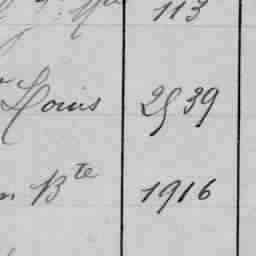 113
Louis 2539
Bte 1916